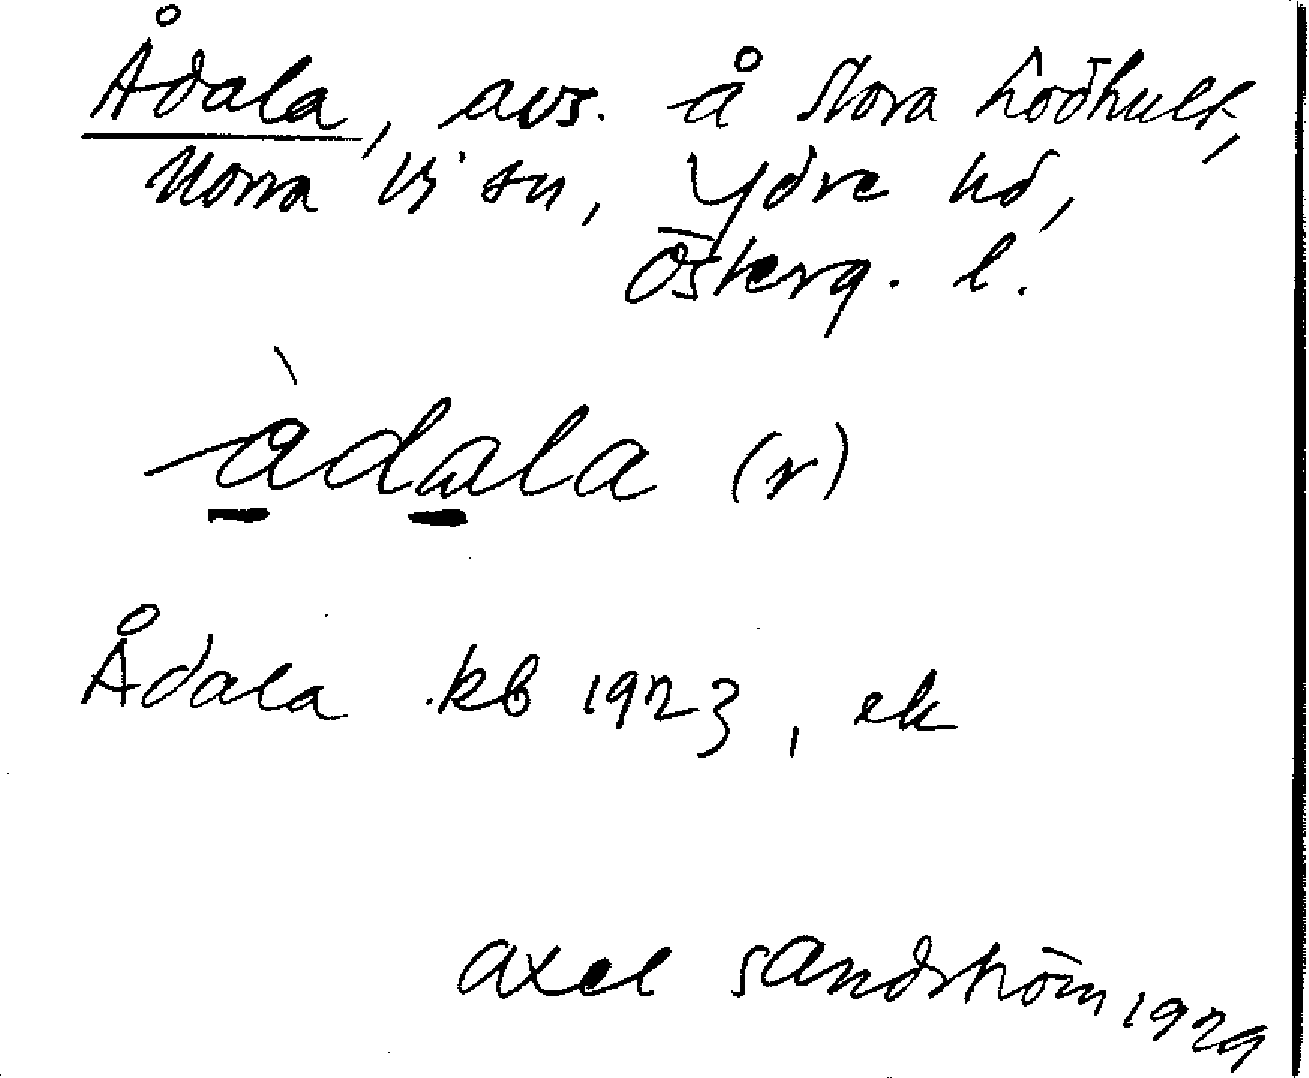 Ådala, avs. å Stora Lödhult,
Norra Vi sn, Ydre hd,
Österg. l.
àdala (r)
Ådala kb 1923, ek
Axel Sandström 1929